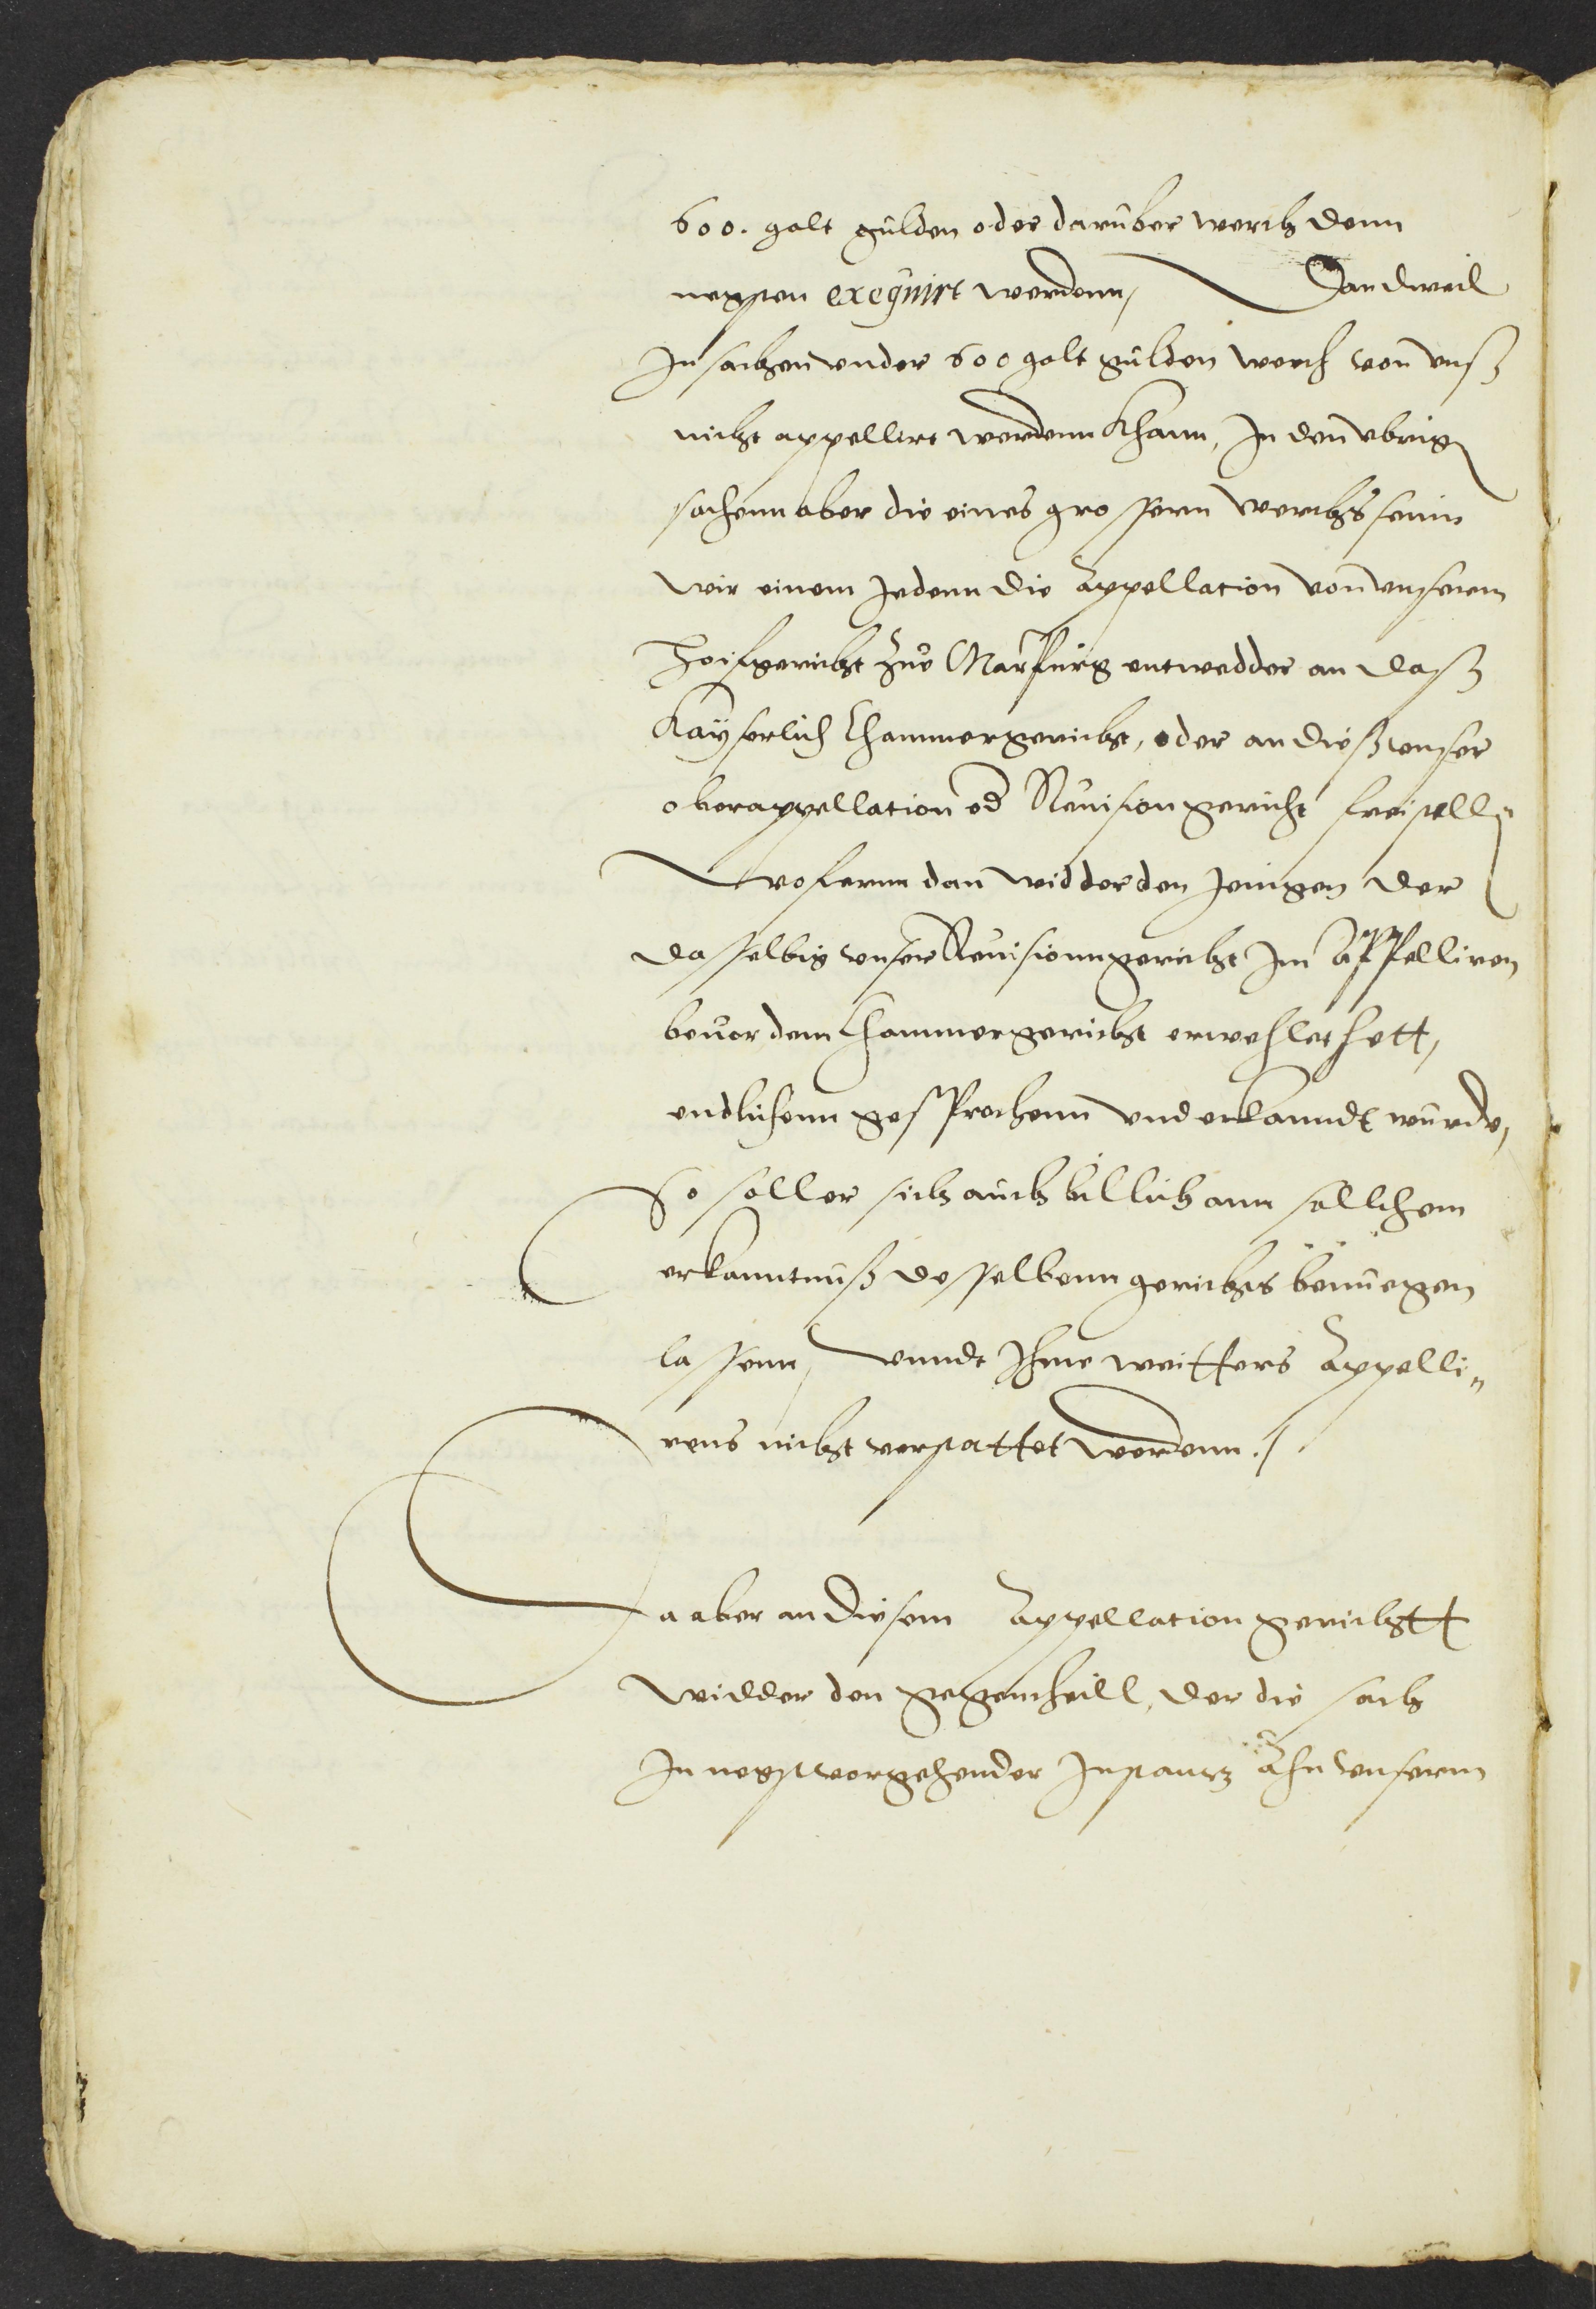 600. golt gulden oder daruber werth denn
negsten exequirt werdenn, Dan dweil
In sachen under 600 golt gulden werth von unß
nicht appellirt werdenn khann, In den ubrig
sachenn aber die eines grossern werths seinn
wir einem Jedenn die Appellation von unserm
Hoifgericht zue Marpurg entwedder an daß
Kayserlich Chammergericht, oder an dieß unser
oberappellation od Revision gericht freistelln
Wofernn dan widder den Jenigen der
dasselbig unser Revisionngericht Im Appelliren
bevor dem Chammergericht erwehlet hett,
endlichenn gesprochenn und erkanndt wurde,
So soll er sich auch billich ann sollchem
erkanntnuß desselbenn gerichts benuegen
lassenn, unndt Ihme weitters Appelli„
rens nicht verstattet werdenn./.
Da aber an diesem Appellation gerichtt
widder den gegentheill, der die sach
In negstvorgehender Instantz Ahn unserm